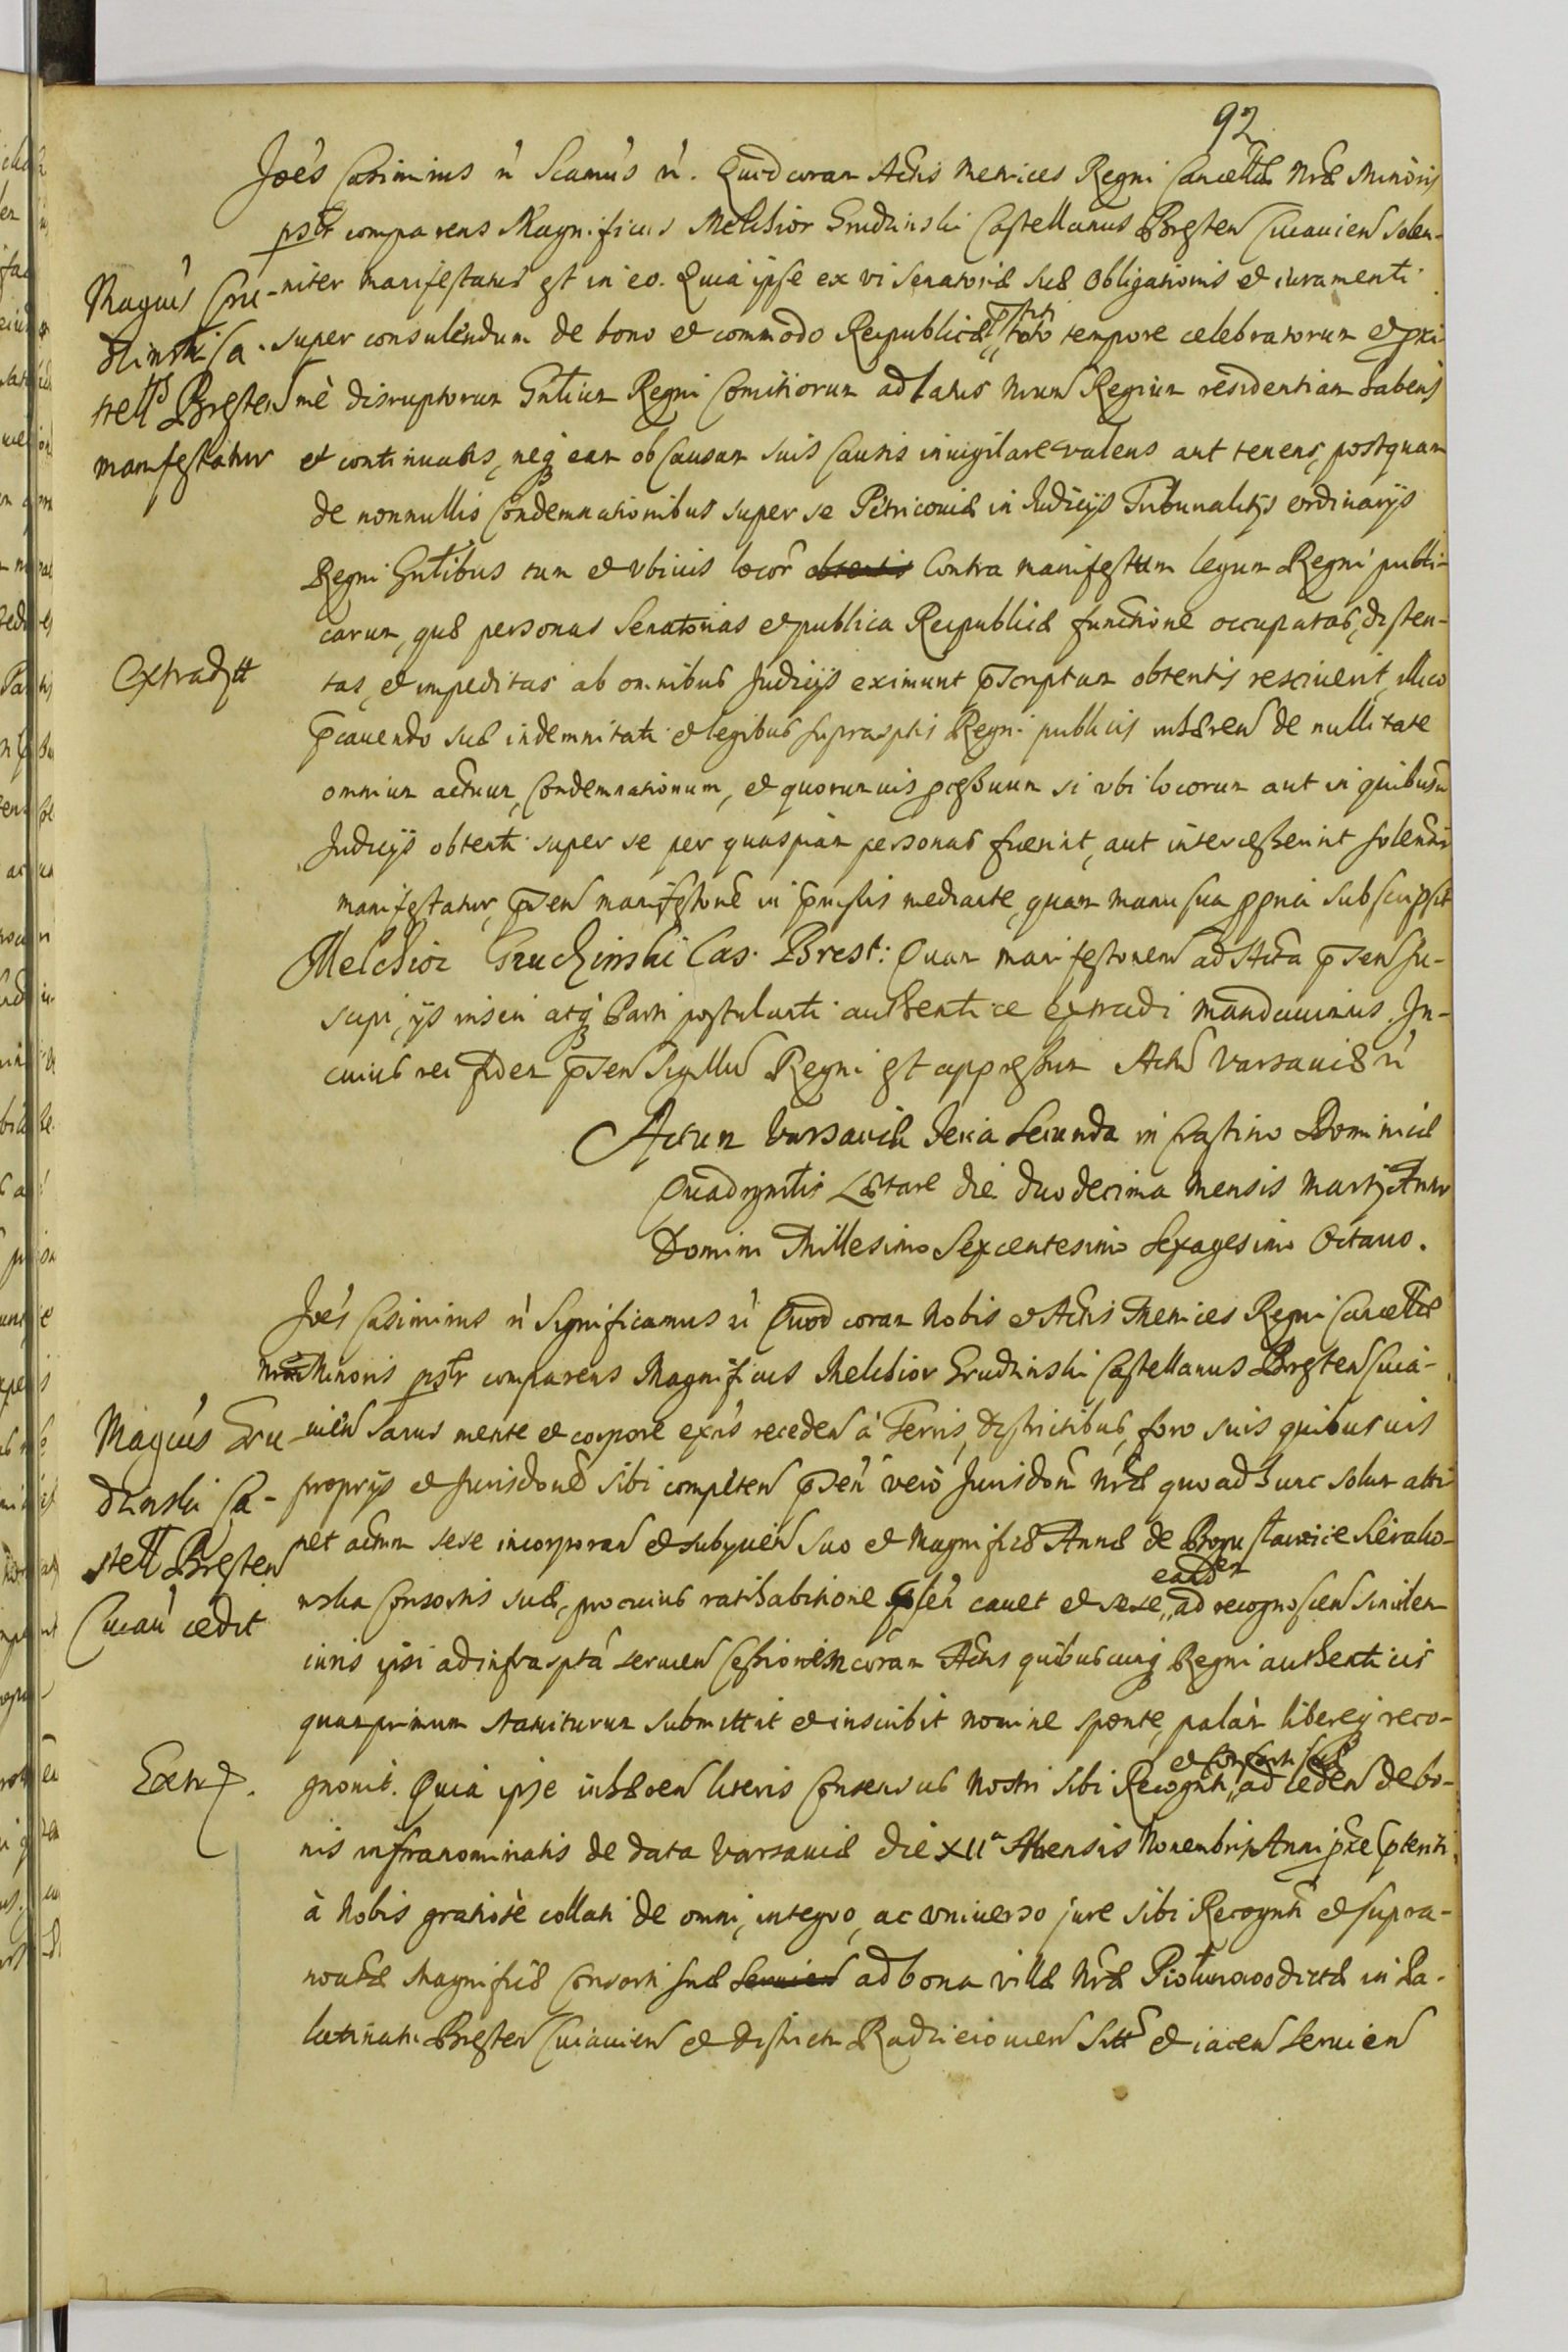 92
Joēs Casimirus rc Scamus rc. Quod coram Actis Metrices Regni Cancellae Nrae Minoris
pstr comparens Magnificus Melchior Grudzinski Castellanus Bresten Cuiauien solen-
niter manifestatus est in eo. Quia ipse ex vi senatoriae suae obligationis et iuramenti
super consulendum de bono et commodo Reipublicae toto tempore celebratorum et proxi
mè disruptorum Gnlium Regni Comitiorum ad latus Nrum Regium residentiam habens
et continuans, neq eam ob causam suis causis inuigilare valens aut tenens, postquam
de nonnullis Condemnationibus super se Petricouiae in Iudicijs Tribunalitijs ordinarijs
Regni Gnlibus tum et vbiuis locor obtentis Contra manifestum legum Regni publi-
carum, quae personas Senatorias et publica Reipublicae functione occupatas, disten-
tas, et impeditas ab omnibus Judicijs eximunt pscriptum obtentis resciuerit, illico
pcauendo suae indemnitati et legibus suprasptis Regni publicis inhaeren de nullitate
omnium actuum, Condemnationum, et quorumuis pcessuum si vbi locorum aut in quibusuis
Judicijs obtenti super se per quaspiam personas fuerint, aut intercesserint solenni
manifestatur, psen manifestone in pmissis mediante, quam manu sua ppria subscripsit
Melchior Grudzinski Cas. Brest: Quam manifestonem ad Acta psen su-
scipi, ijs inseri atq Parti postulanti authentice extradi mandauimus. In-
cuius rei fidem psen Sigillum Regni est appressum Actum Varsauiae rc
Actum Varsauiae Feria Secunda in Crastino Dominicae
Quadragmlis Laetare die duodecima mensis Martij Anno
Domini Millesimo Sexcentesimo Sexagesimo Octauo.
Joēs Casimirus rc Significamus rc Quod coram Nobis et Actis Metrices Regni Cancellae
Nrae Minoris pstr comparens Magnificus Melchior Grudzinski Castellanus Bresten Cuia-
uien sanus mente et corpore exns receden à Terris, districtibus, foro suis quibusuis
proprijs et Jurisdone sibi competen psen verò Jurisdoni Nrae quo ad hunc solum atti
net actum sese incorporan et subijcien suo et Magnificae Annae de Bogusławice Sierako-
wska Consortis suae, pro cuius ratihabitione psen cauet et sese, eand ad recognoscen similem
iuris ipsi ad infrasptâ seruien Cessionem coram Actis quibuscunq Regni authenticis
quamprimum staturam submittit et inscribit nomine sponte, palàm libereq reco-
gnouit. Quia ipse inhaeren literis Consensus Nostri sibi Recognti, et Consorti suae ad ceden de bo-
nis infranominatis de data Varsauiae die XIIa Mensis Nouembris Anni pxe pteriti
à Nobis gratiosè collati de omni, integro, ac vniuerso jure sibi Recognti et supra-
nomtae Magnificae Consorti suae seruien ad bona villae Nrae Piotunowo dictae in Pa-
latinatu Bresten Cuiauien et districtu Radzieiouien Sitt et iacen seruien
Magcus Gru-
dzinski Ca-
stells Bresten
manifestatur
Extradtt
Magcus Gru-
dzinski Ca-
stell Bresten
Cuiau cedit
Extr